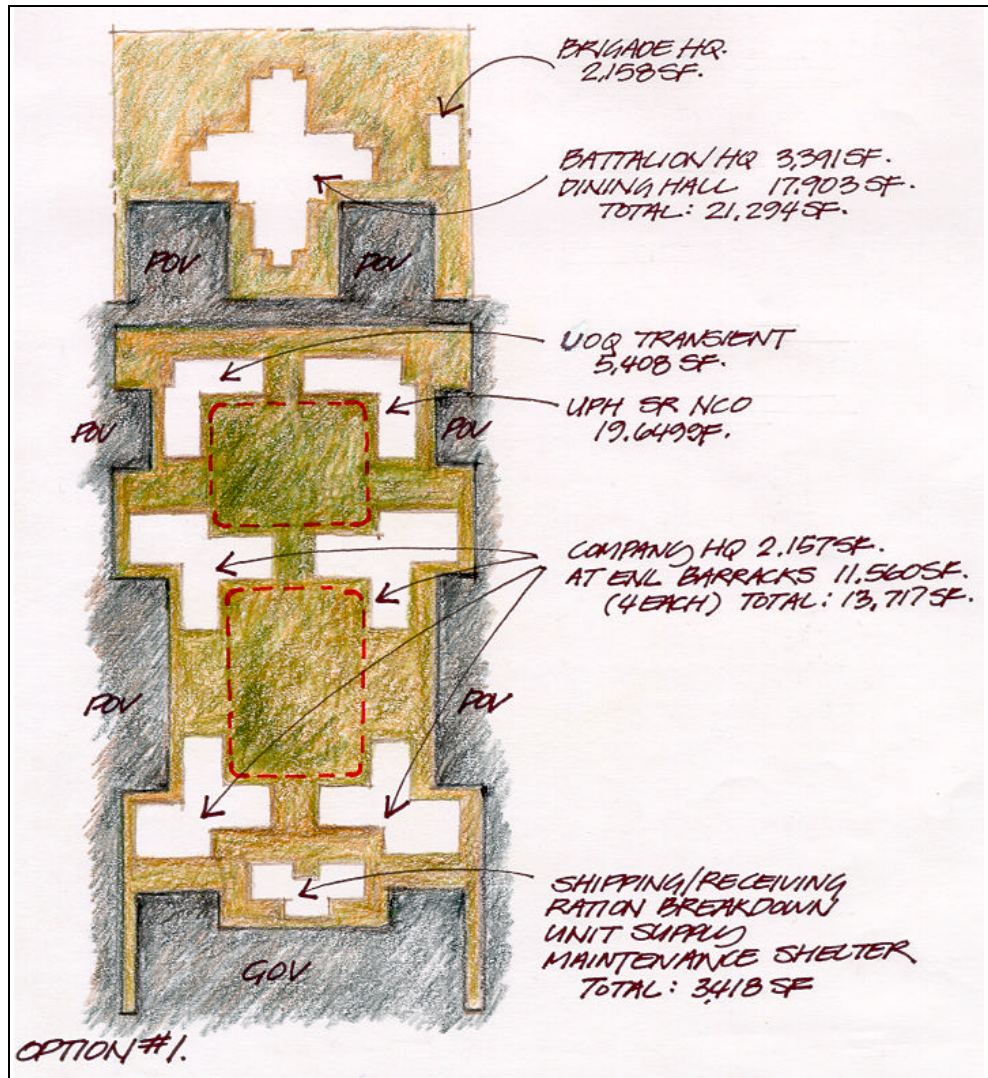 BRIGADE HQ.
2,158 SF.
BATTALION HQ 3,391 SF.
DINING HALL 17,903 SF.
TOTAL: 21,294 SF.
POV
POV
UOQ TRANSIENT
5,408 SF.
UPH SR NCO
19,649 SF.
POV
POV
COMPANY HQ 2,157 SF.
AT ENL BARRACKS 11,560 SF.
(4 EACH) TOTAL: 13,717 SF.
POV
POV
SHIPPING/RECEIVING
RATION BREAKDOWN
UNIT SUPPLY
MAINTENANCE SHELTER
TOTAL: 3,418 SF
GOV
OPTION #1.